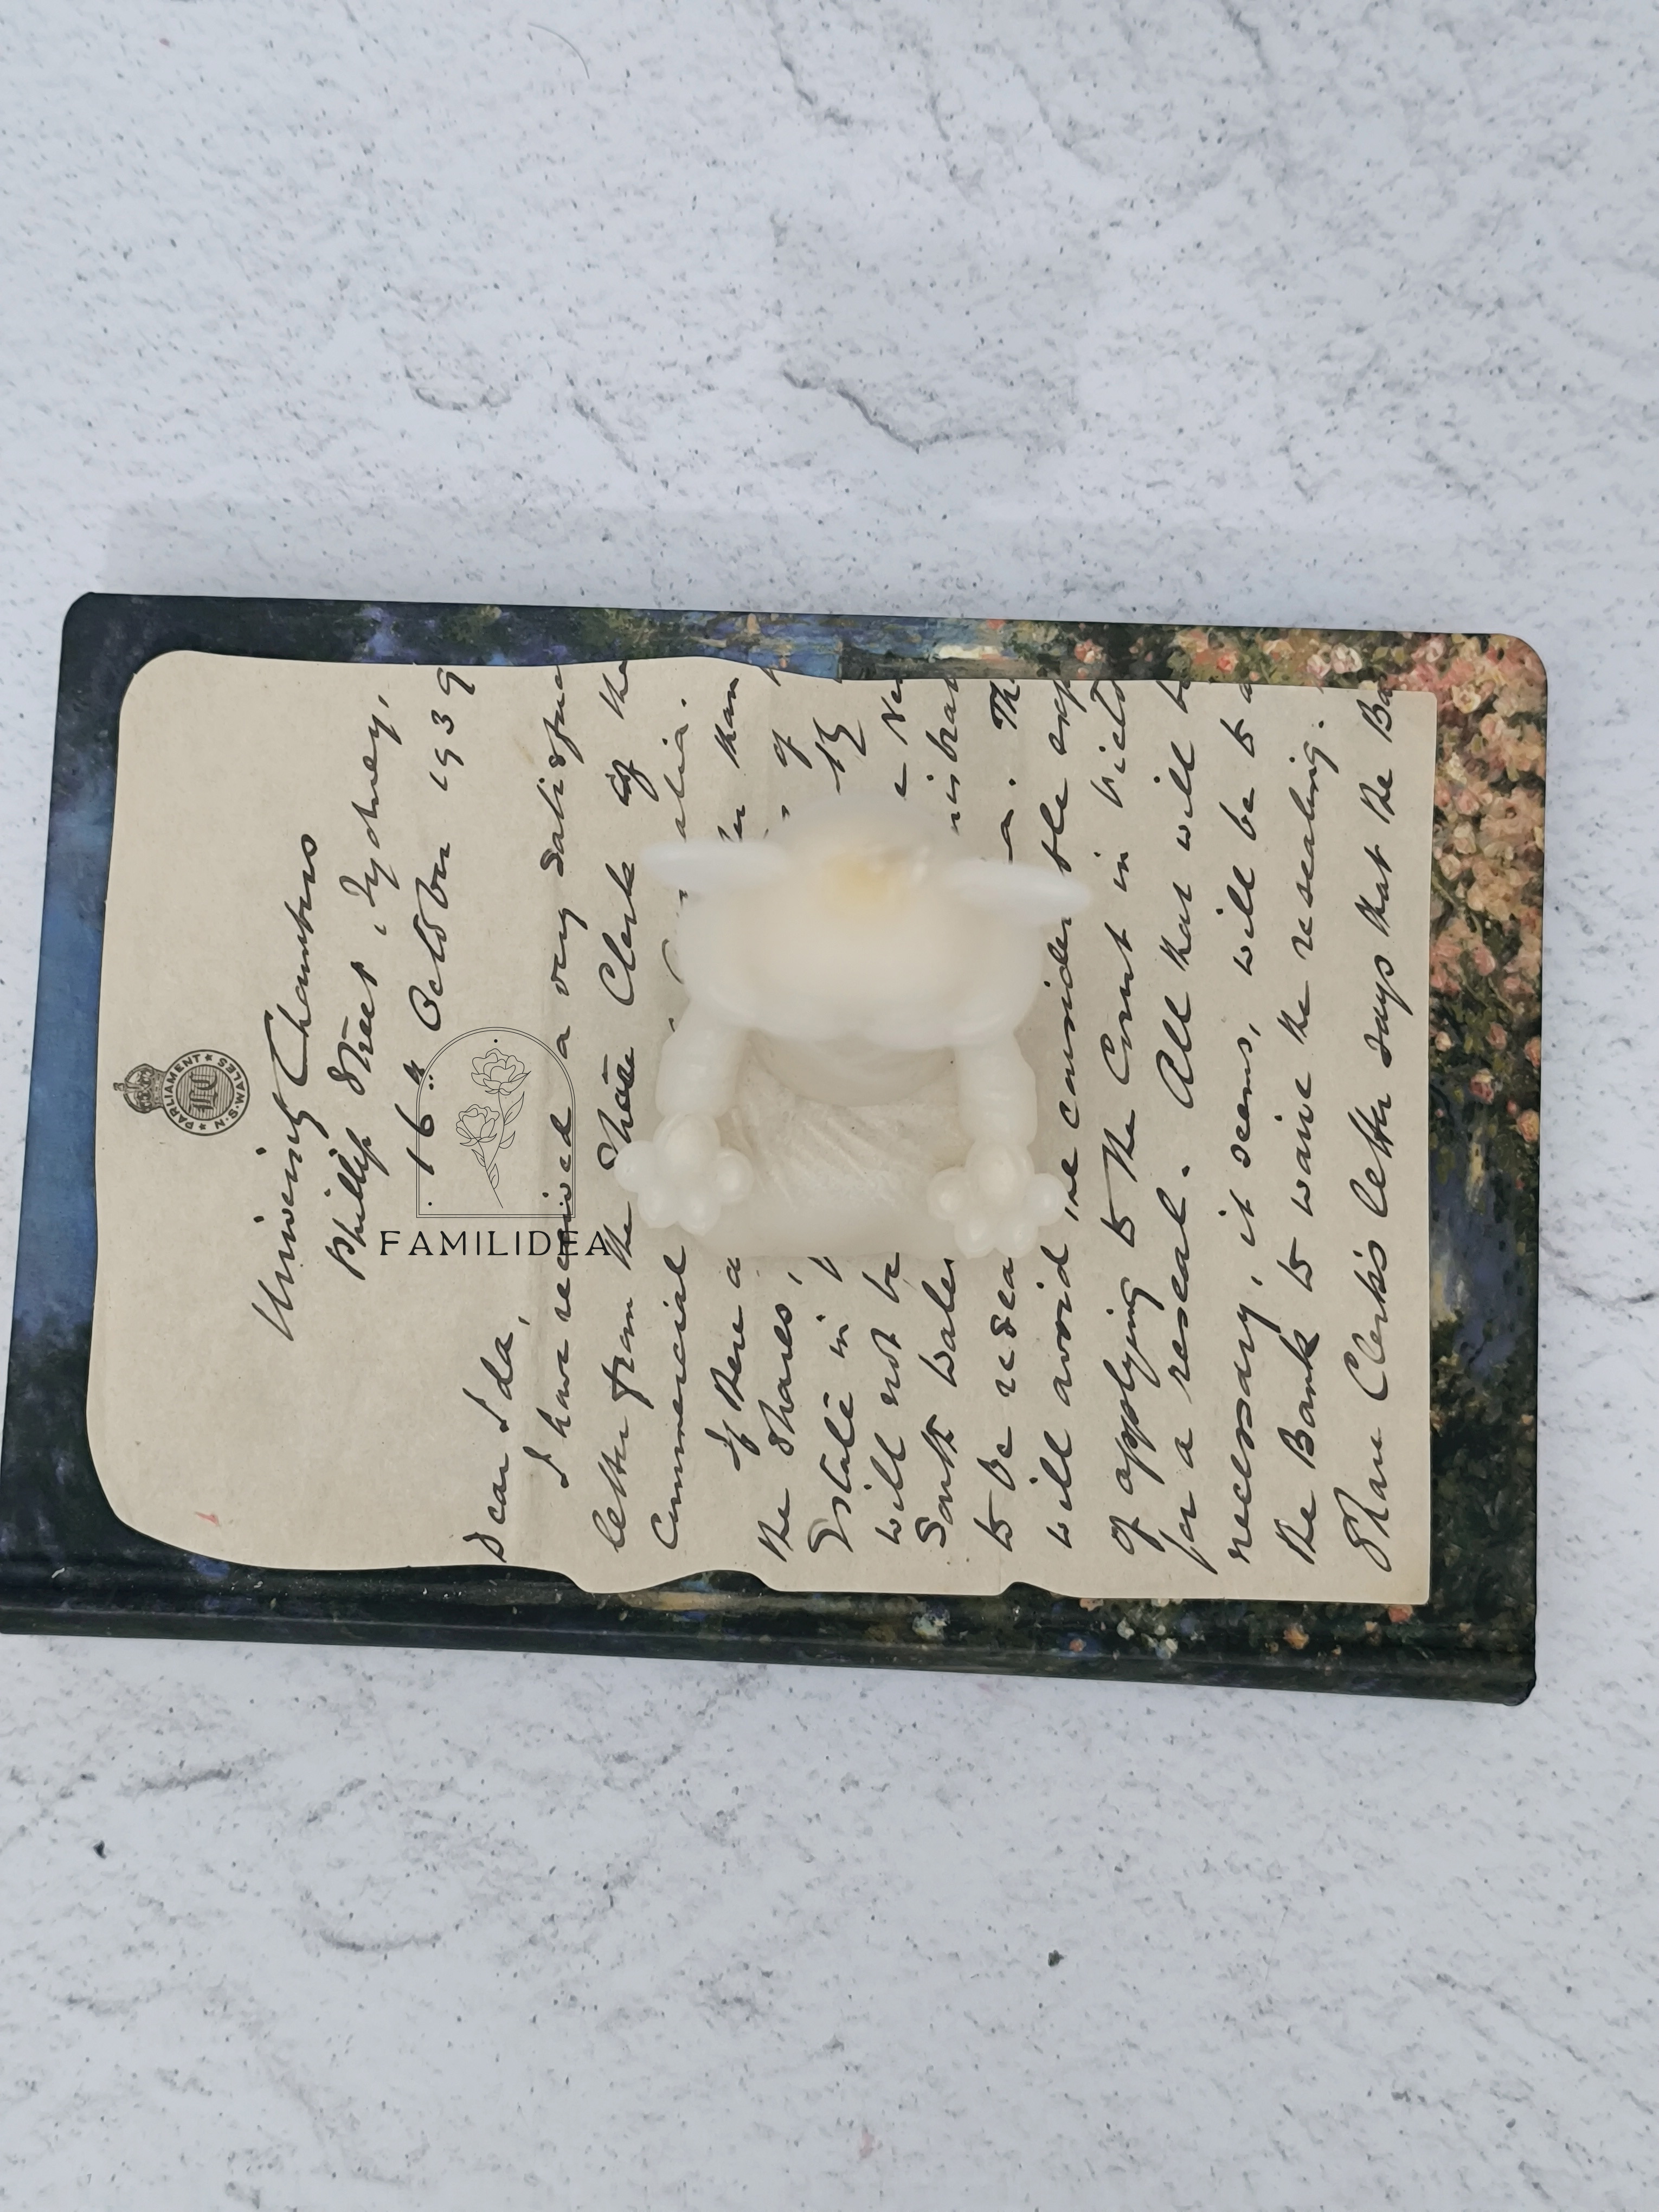 ★ PARLIAMENT ★ N.S.WALES
LC
University Chambers
Phillip Street, Sydney,
16th October 1939
Dear Ida,
I have received a very
letter from the Share Clerk of the
Commercial
If there a than
the Shares, of
Estate in
will not be
South Wales
to be The
will avoid the
of applying to the Court in
for a reseal. All that will be
necessary, it seems, will be to a
the Bank to waive the resealing.
Share Clerk's letter says that the Ba
FAMILIDEA